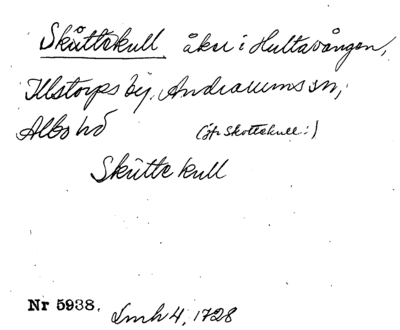 Skåttekull åker i Hultavången,
Illstorps by, Andrarums sn,
Albo hd (jfr Skottekull:)
Skåttekull
Nr 5938. Lmh 4, 1728